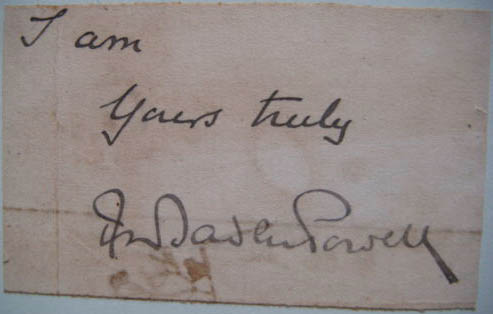 I am
Yours truly
Baden Powell